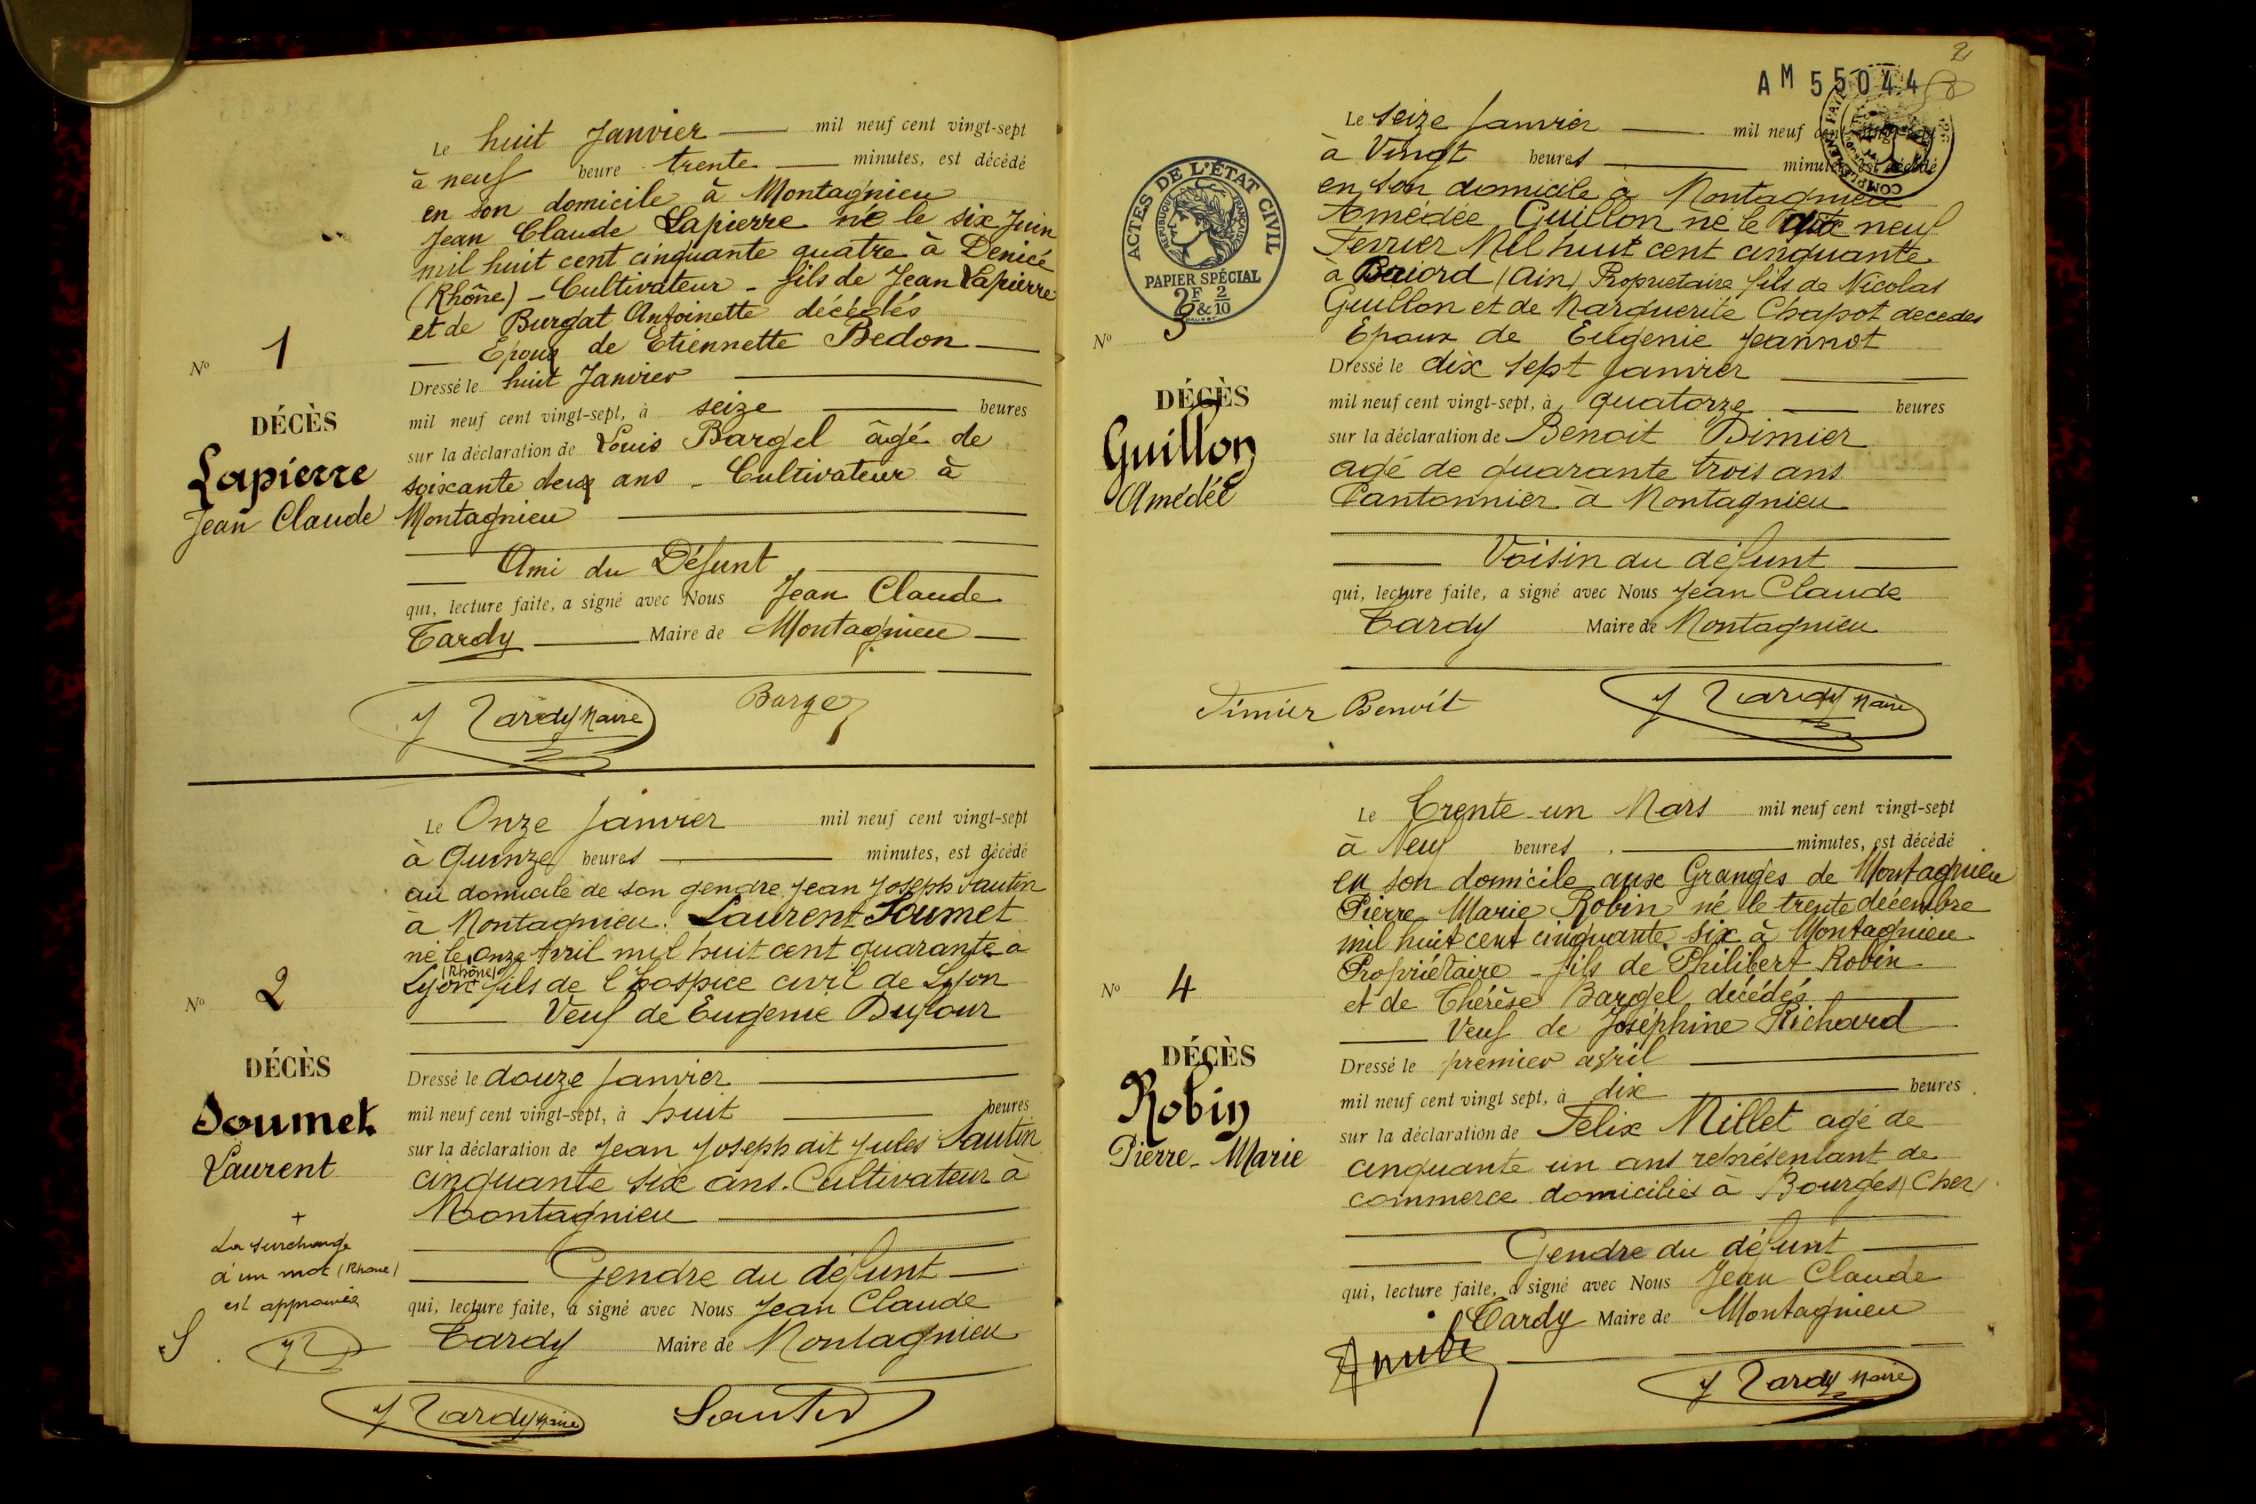 Le huit Janvier mil neuf cent vingt-sept
à neuf heure trente minutes, est décédé
en son domicile à Montagnieu
Jean Claude Lapierre né le six Juin
mil huit cent cinquante quatre à Denicé
(Rhône) - Cultivateur - fils de Jean Lapierre
et de Burgat Antoinette décédés
Epoux de Etiennette Bedon
No 1
DÉCÈS
Lapierre
Jean Claude
Dressé le huit Janvier
mil neuf cent vingt-sept, à seize heures
sur la déclaration de Louis Bargel âgé de
soixante deux ans - Cultivateur à
Montagnieu
Ami du Défunt
qui, lecture faite, a signé avec Nous Jean Claude
Tardy Maire de Montagnieu
J Tardy Maire
Bargel
Le Onze Janvier mil neuf cent vingt-sept
à Quinze heures minutes, est décédé
au domicile de son gendre Jean Joseph Sautin
à Montagnieu. Laurent Soumet
né le onze Avril mil huit cent quarante à
(Rhône)
Lyon + fils de l'hospice civil de Lyon
Veuf de Eugenie Dufour
No 2
DÉCÈS
Soumet
Laurent
+
La surcharge
d'un mot (Rhone)
est approuvée
S
JT
Dressé le douze Janvier
mil neuf cent vingt-sept, à huit heures
sur la déclaration de Jean Joseph dit Jules Sautin
cinquante six ans. Cultivateur à
Montagnieu
Gendre du défunt
qui, lecture faite, a signé avec Nous Jean Claude
Tardy Maire de Montagnieu
J Tardy Maire
Sautin
2
AM 55044
ACTES DE L'ÉTAT CIVIL
RÉPUBLIQUE FRANÇAISE
PAPIER SPÉCIAL
2F & 2/10
Le seize Janvier mil neuf cent vingt-sept
à Vingt heures minutes, est décédé
en son domicile à Montagnieu
Amédée Guillon né le neuf
Fevrier Mil huit cent cinquante
à Briord (Ain) Proprietaire fils de Nicolas
Guillon et de Marguerite Chapot decedes
Epoux de Eugenie Jeannot
No 3
DÉCÈS
Guillon
Amédée
Dressé le dix sept Janvier
mil neuf cent vingt-sept, à quatorze heures
sur la déclaration de Benoit Dimier
agé de quarante trois ans
Cantonnier à Montagnieu
Voisin du défunt
qui, lecture faite, a signé avec Nous Jean Claude
Tardy Maire de Montagnieu
Dimier Benoit
J Tardy Maire
Le Trente un Mars mil neuf cent vingt-sept
à Neuf heures minutes, est décédé
en son domicile aux Granges de Montagnieu
Pierre Marie Robin né le trente décembre
mil huit cent cinquante six à Montagnieu
Propriétaire - fils de Philibert Robin
et de Thérèse Bargel décédés
Veuf de Joséphine Richard
No 4
DÉCÈS
Robin
Pierre-Marie
Dressé le premier avril
mil neuf cent vingt sept, à dix heures
sur la déclaration de Felix Millet agé de
cinquante un ans représentant de
commerce domicilié à Bourges (Cher)
Gendre du défunt
qui, lecture faite, a signé avec Nous Jean Claude
Tardy Maire de Montagnieu
J Tardy Maire